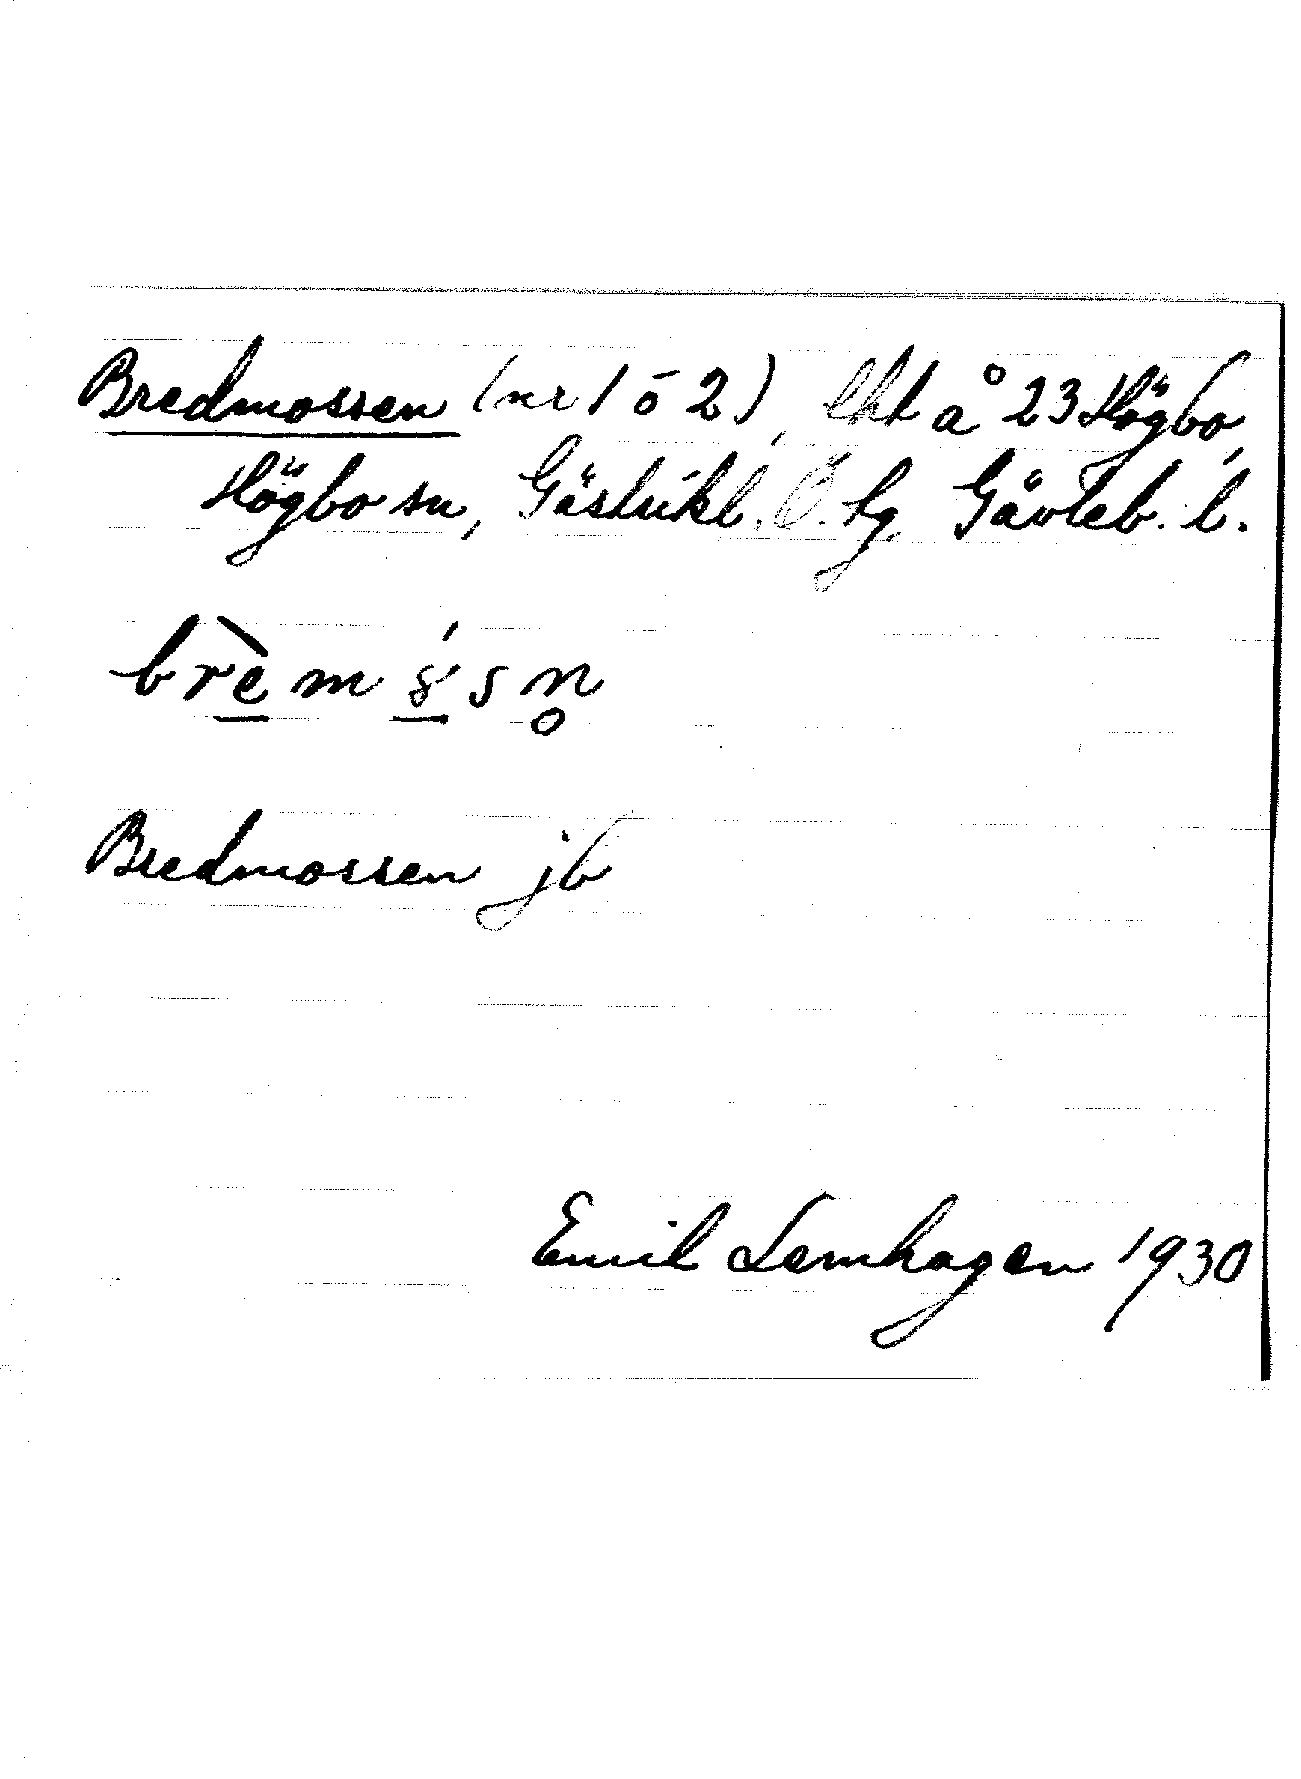 Bredmossen (nr 1 o 2), lht å 23 Högbo,
Högbo sn, Gästrikl. Ö. tg. Gävleb. l.
brèmósn̥
Bredmossen jb
Emil Lernhagen 1930